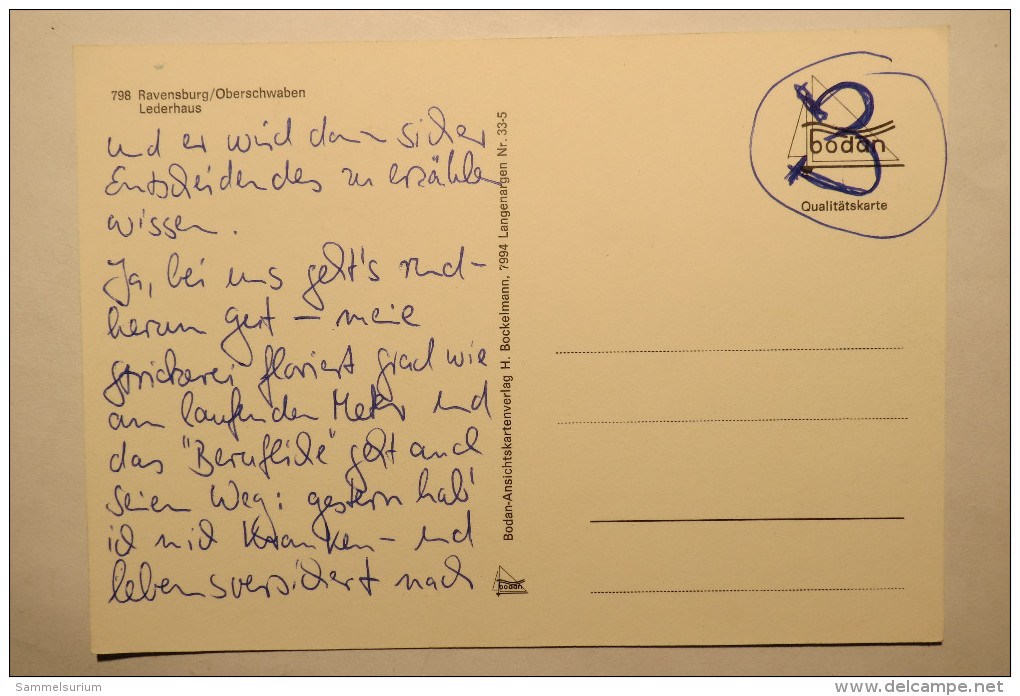 798 Ravensburg/Oberschwaben
Lederhaus
und er wird dann sicher
Entscheidendes zu erzählen
wissen.
Ja, bei uns geht's rund-
herum gut – meine
Strickerei floriert grad wie
am laufenden Meter und
das "Berufliche" geht auch
seinen Weg: gestern hab'
ich mich Kranken- und
lebensversichert nach
Bodan-Ansichtskartenverlag H. Bockelmann, 7994 Langenargen Nr. 33-5
bodan
3
bodan
Qualitätskarte
Sammelsurium
www.delcampe.net